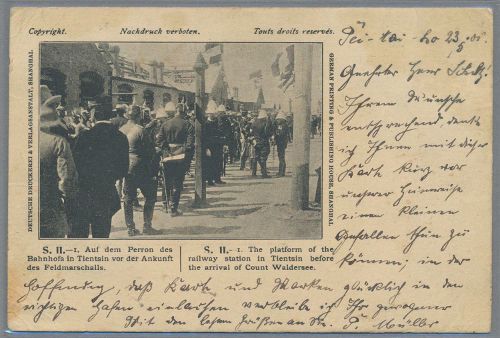 Copyright. Nachdruck verboten. Touts droits reservés.
DEUTSCHE DRUCKEREI & VERLAGSANSTALT, SHANGHAI.
GERMAN PRINTING & PUBLISHING HOUSE, SHANGHAI
S. II.—1. Auf dem Perron des
Bahnhofs in Tientsin vor der Ankunft
des Feldmarschalls.
S. II.—1. The platform of the
railway station in Tientsin before
the arrival of Count Waldersee.
Pei-tai-ho 23
Geehrter Herr
Ihrem Wunsche
entsprechend, denke
ich Ihnen mit dieser
Karte kurz vor
unserer Heimreise
einen kleinen
Gefallen thun zu
können; in der
Hoffnung, daß Karte und Marken glücklich in den
richtigen Hafen einlaufen verbleibe ich Ihr
Mit den besten Grüßen an Sie P. Müller